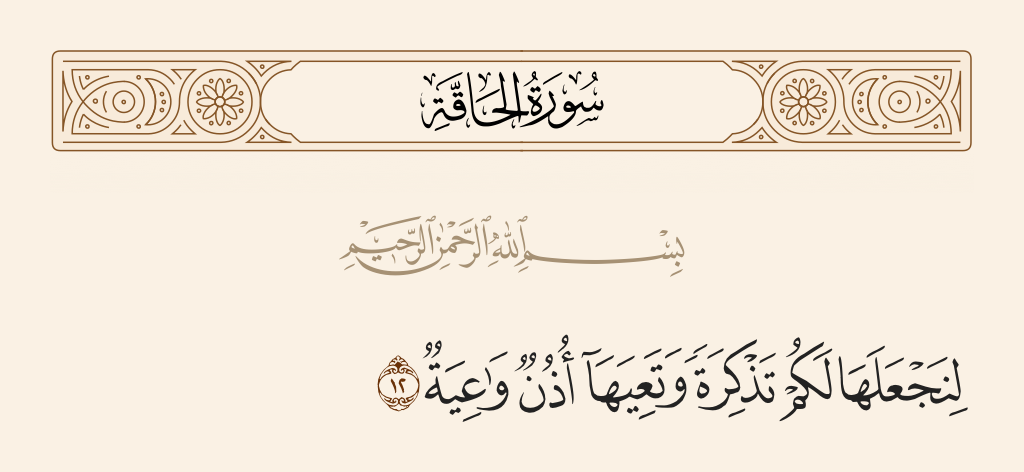 سُورَةُ الحَاقَّةِ
بِسْمِ ٱللَّهِ ٱلرَّحْمَٰنِ ٱلرَّحِيمِ
لِنَجْعَلَهَا لَكُمْ تَذْكِرَةً وَتَعِيَهَآ أُذُنٌ وَٰعِيَةٌ ١٢